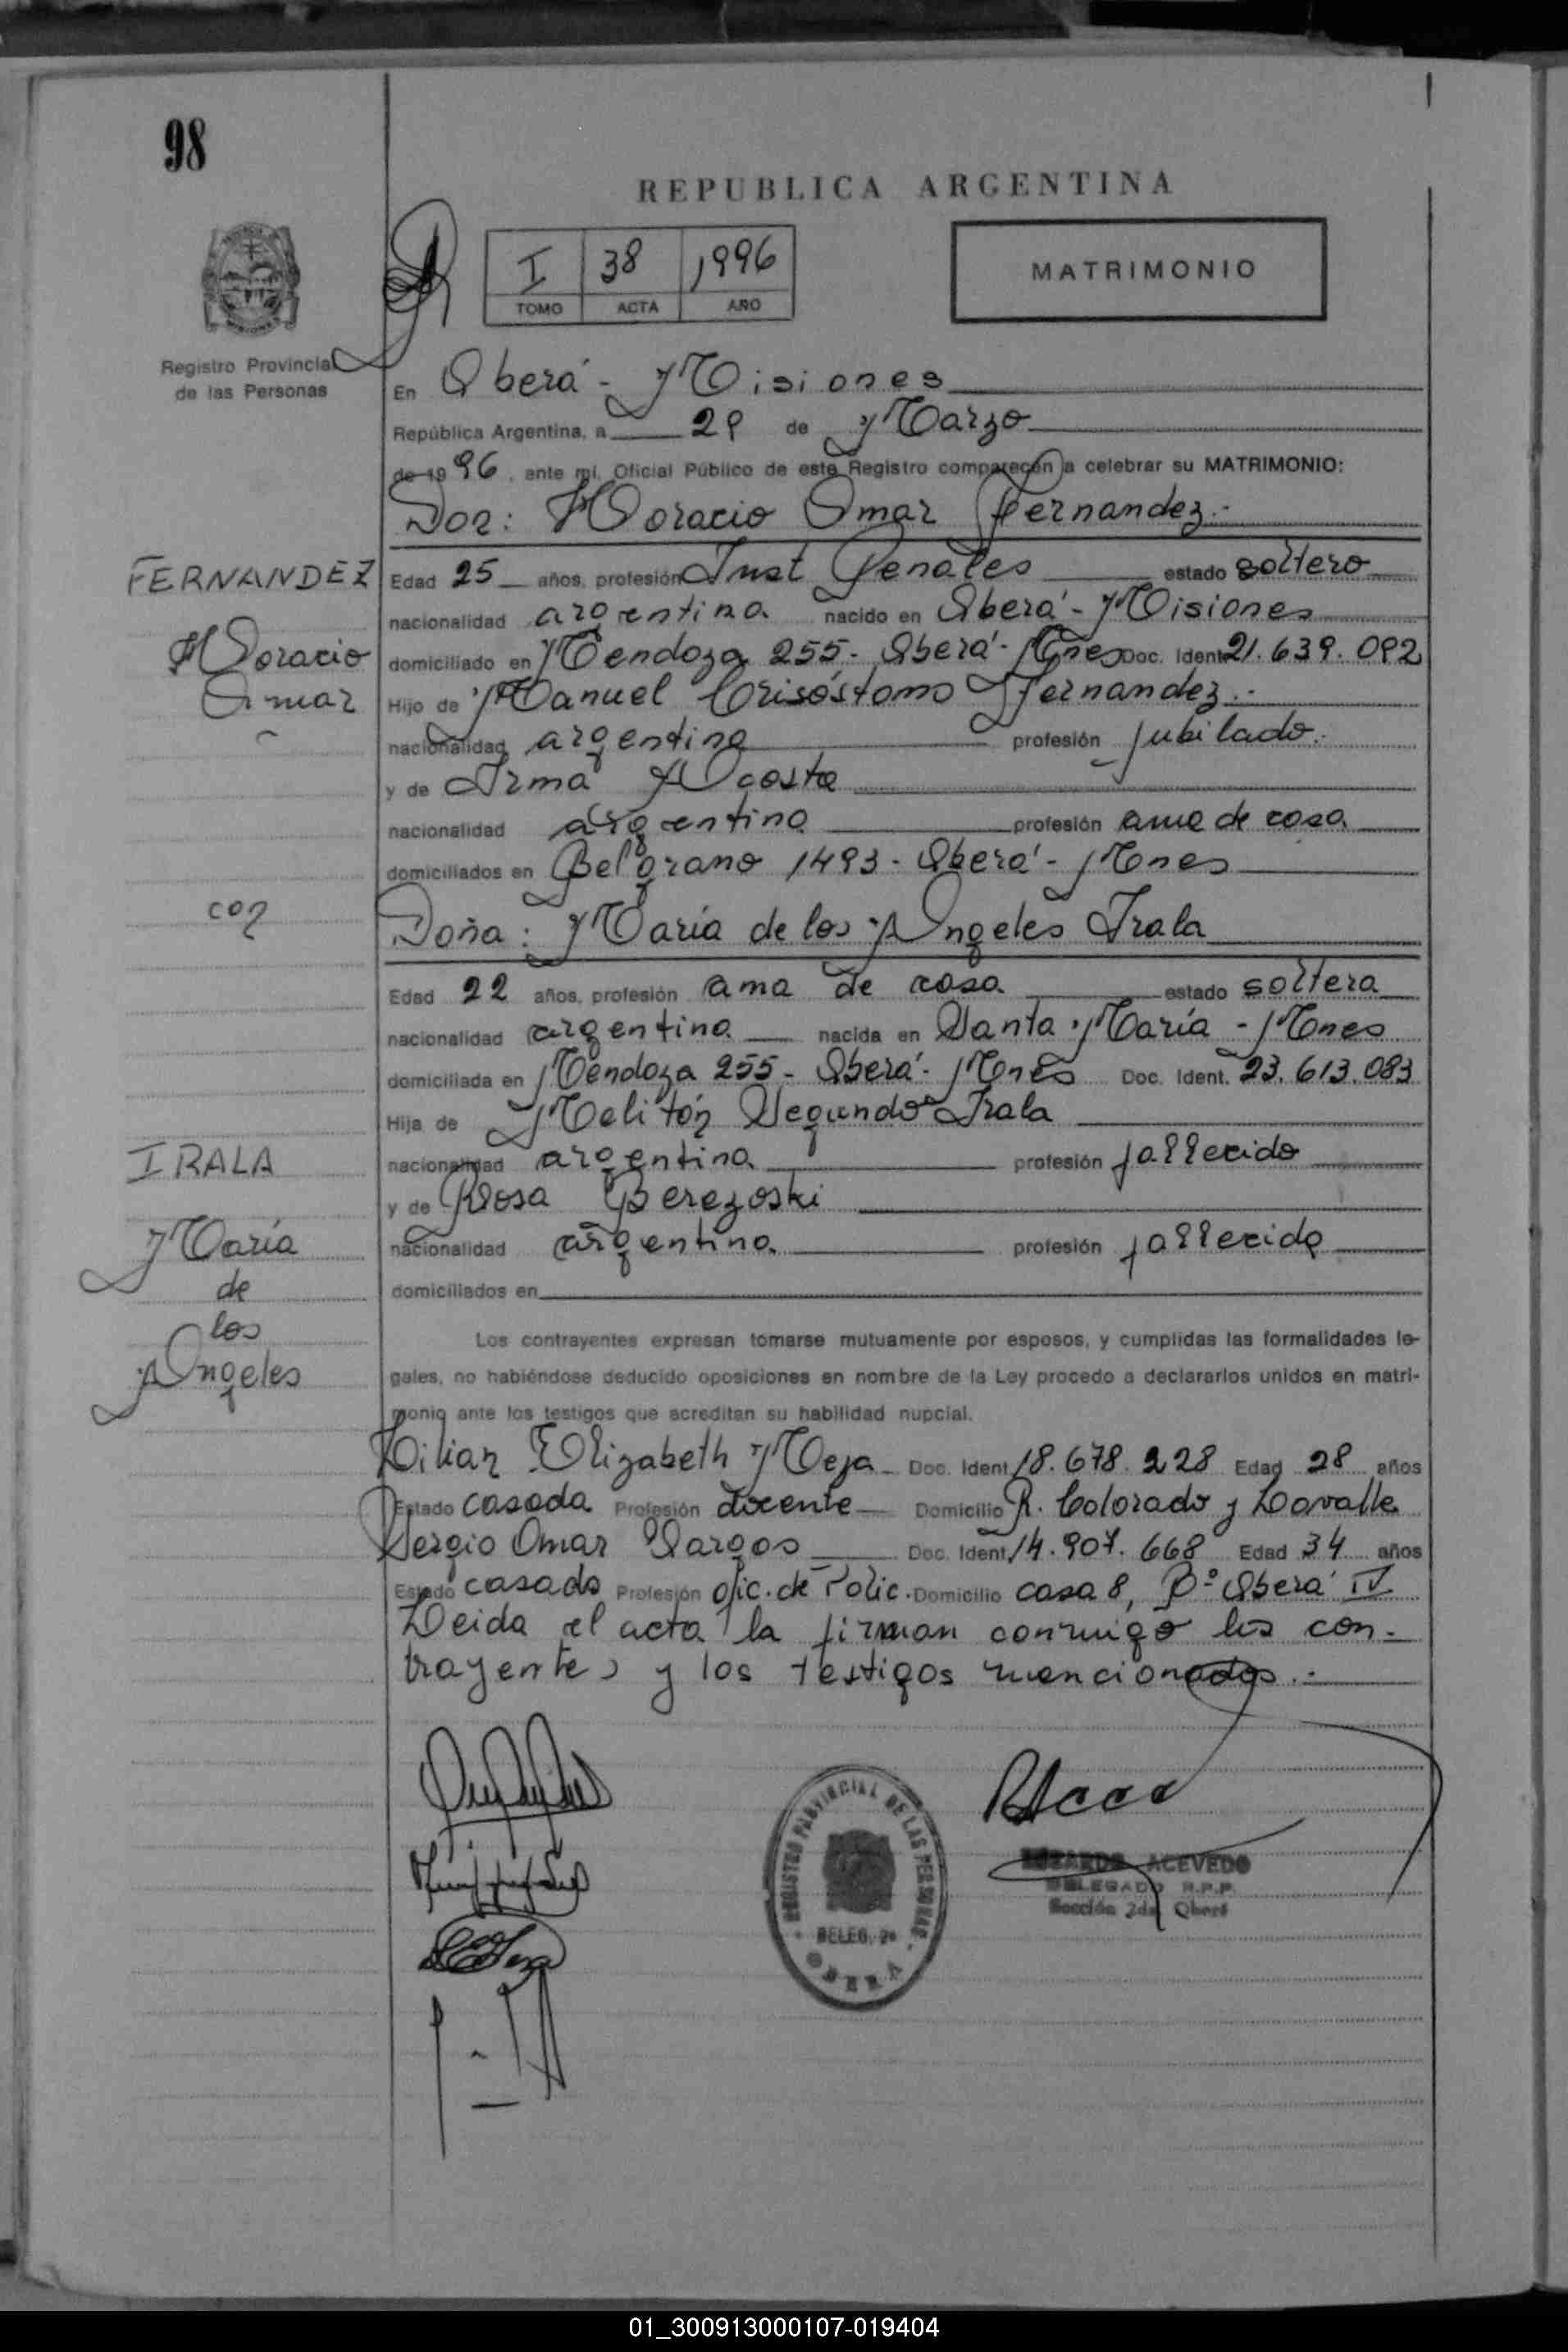 98
REPUBLICA ARGENTINA
I 38 1996
TOMO ACTA AÑO
MATRIMONIO
Registro Provincial
de las Personas
En Oberá - Misiones
República Argentina, a 29 de Marzo
de 1996, ante mí, Oficial Público de este Registro comparecen a celebrar su MATRIMONIO:
Don: Horacio Omar Fernandez.-
FERNANDEZ
Horacio
Omar
Edad 25 años, profesión Inst Penales estado soltero
nacionalidad argentina nacido en Oberá - Misiones
domiciliado en Mendoza 255 - Oberá - Mnes Doc. Ident. 21.639.092
Hijo de Manuel Crisóstomo Fernandez.-
nacionalidad argentina profesión jubilado.-
y de Irma Acosta
nacionalidad argentina profesión ama de casa
domiciliados en Belgrano 1493 - Oberá - Mnes
con
Doña: María de los Angeles Irala
Edad 22 años, profesión ama de casa estado soltera
nacionalidad argentina nacida en Santa María - Mnes
domiciliada en Mendoza 255 - Oberá - Mnes Doc. Ident. 23.613.083
Hija de Melitón Segundo Irala
IRALA
María
de
los
Angeles
nacionalidad argentina profesión fallecido
y de Rosa Berezoski
nacionalidad argentina profesión fallecida
domiciliados en
Los contrayentes expresan tomarse mutuamente por esposos, y cumplidas las formalidades le-
gales, no habiéndose deducido oposiciones en nombre de la Ley procedo a declararlos unidos en matri-
monio ante los testigos que acreditan su habilidad nupcial.
Lilian Elizabeth Meza Doc. Ident. 18.678.228 Edad 28 años
Estado casada Profesión docente Domicilio R. Colorado y Lavalle
Sergio Omar Vargas Doc. Ident. 14.907.668 Edad 34 años
Estado casado Profesión ofic. de Polic. Domicilio casa 8, Bº Oberá IV
Leida el acta la firman conmigo los con-
trayentes y los testigos mencionados.-
REGISTRO PROVINCIAL DE LAS PERSONAS
DELEG. 2a
OBERA
ACEVEDO
DELEGADO R.P.P.
Sección 2da Oberá
01_300913000107-019404